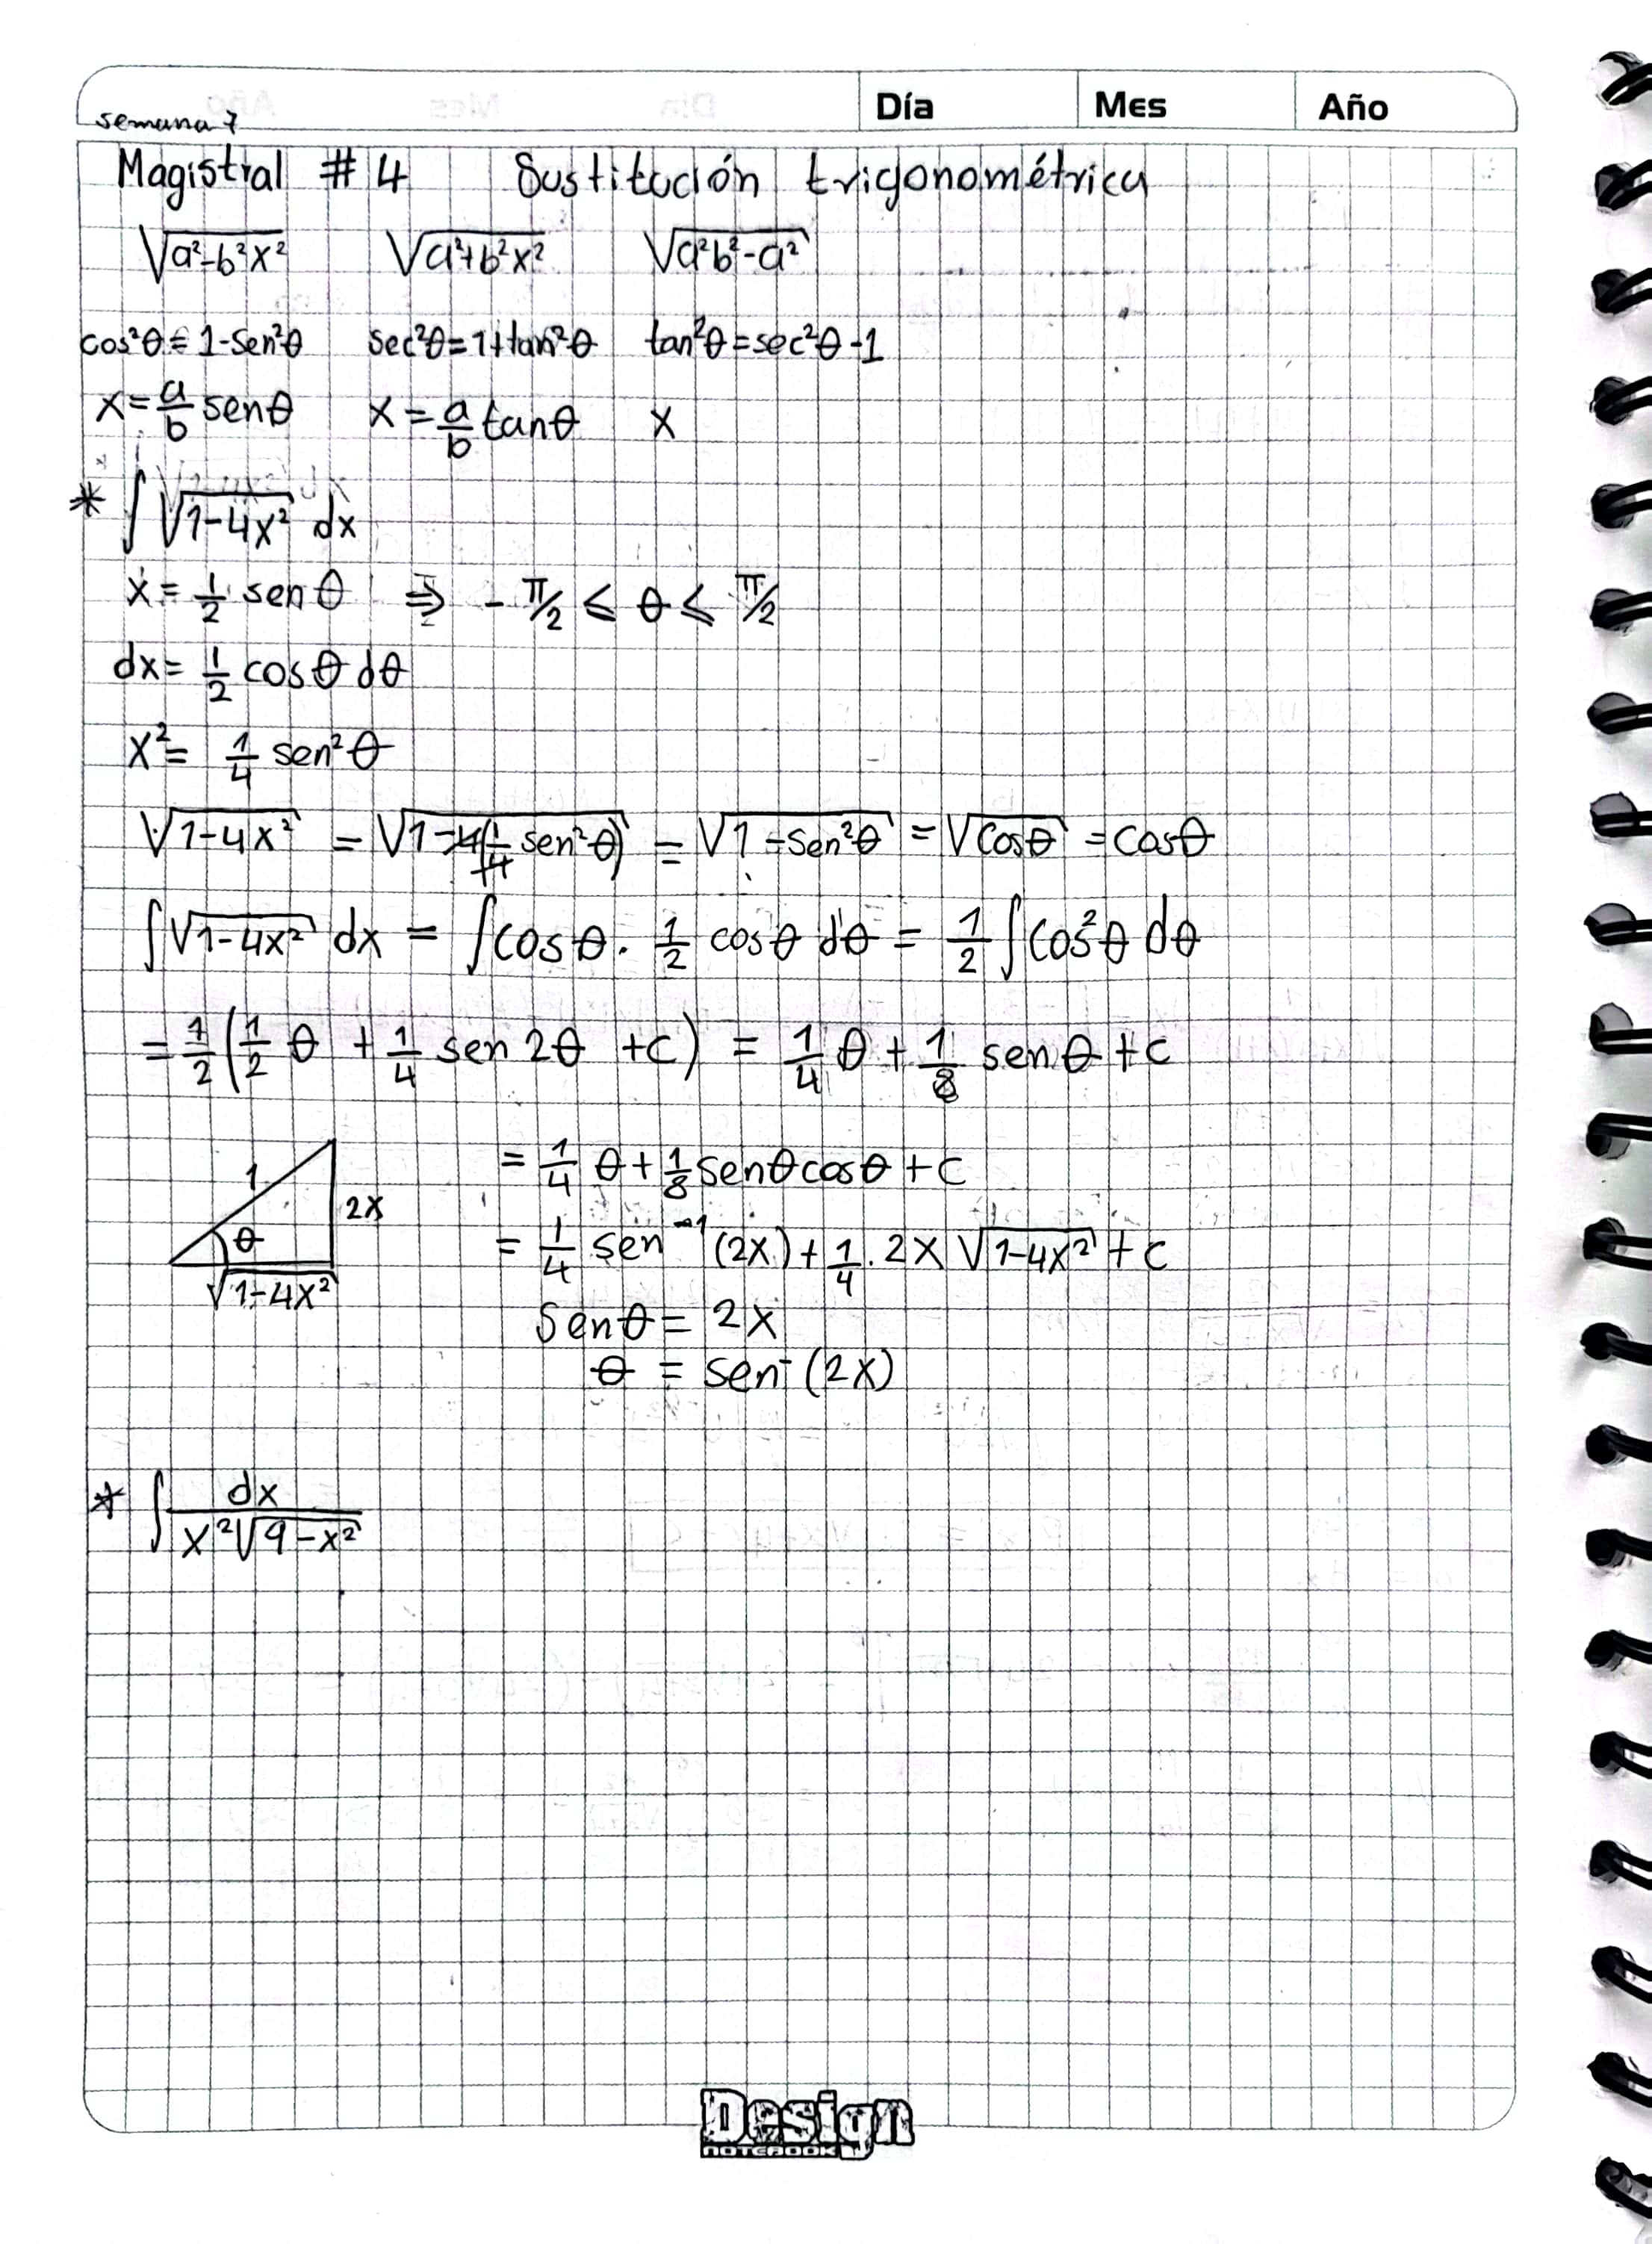 Día Mes Año
semana 7
Magistral # 4 Sustitución trigonométrica
√(a²-b²x²) √(a²+b²x²) √(a²b²-a²)
cos²θ = 1-sen²θ sec²θ=1+tan²θ tan²θ=sec²θ-1
x=a/b senθ x=a/b tanθ x
* ∫√(1-4x²) dx
x = 1/2 senθ ⇒ -π/2 ≤ θ ≤ π/2
dx = 1/2 cosθ dθ
x² = 1/4 sen²θ
√(1-4x²) = √(1-4(1/4 sen²θ)) = √(1-sen²θ) = √(cosθ) = cosθ
∫√(1-4x²) dx = ∫cosθ · 1/2 cosθ dθ = 1/2 ∫cos²θ dθ
= 1/2 (1/2 θ + 1/4 sen 2θ + c) = 1/4 θ + 1/8 senθ + c
1
2x
θ
√(1-4x²)
= 1/4 θ + 1/8 senθcosθ + c
= 1/4 sen⁻¹ (2x) + 1/4 · 2x √(1-4x²) + c
senθ = 2x
θ = sen⁻ (2x)
* ∫ dx / (x²√(9-x²))
Design
NOTEBOOK